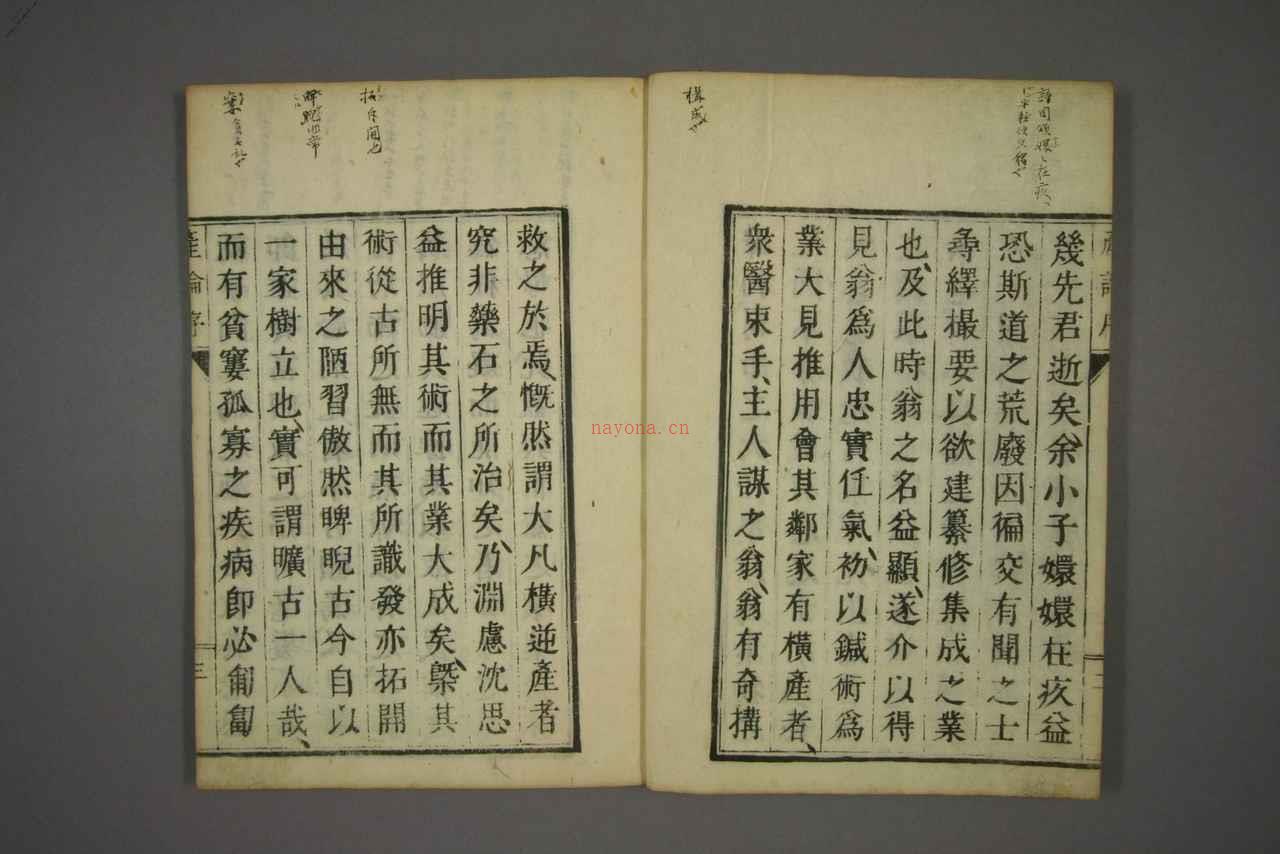 幾先君逝矣、余小子嬛嬛在疚益
恐斯道之荒廢因徧交有聞之士
尋繹撮要以欲建纂修集成之業
也、及此時翁之名益顯、遂介以得
見翁爲人忠實任氣、初以鍼術爲
業大見推用會其鄰家有橫產者、
衆醫束手、主人謀之翁、翁有奇搆
搆成也
救之於焉、慨然謂大凡橫逆產者
究非藥石之所治矣、乃淵慮沈思
益推明其術而其業大成矣、槩其
術從古所無而其所識發亦拓開
由來之陋習傲然睥睨古今自以
一家樹立也、實可謂曠古一人哉、
而有貧窶孤寡之疾病卽必匍匐
產論序
三
拓斥開也
nayona.cn